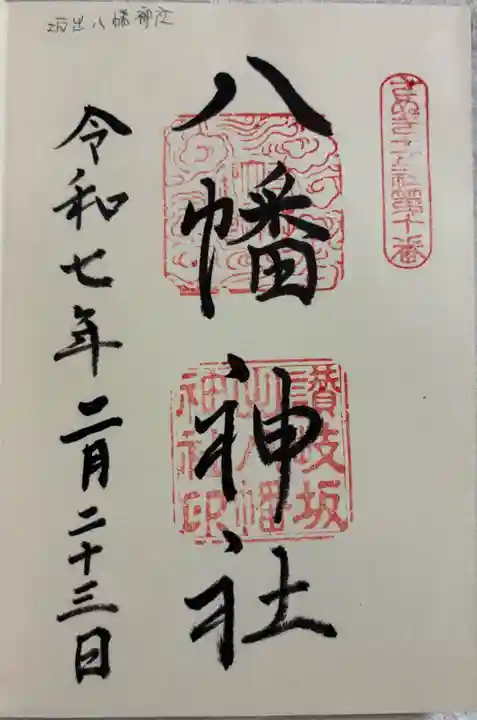 坂出八幡神社
八幡神社
讃岐坂
出八幡
神社印
令和七年二月二十三日